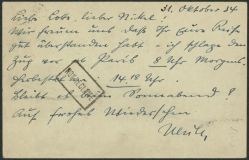 31. Oktober 34
Liebe Lobe, lieber Nickel!
Wir freuen uns daß Ihr Eure Reise
gut überstanden habt – ich schlage den
Zug vor ab Paris 8 Uhr Morgens.
14.18 Uhr.
Bleibt es beim Sonnabend?
Auf frohes Wiedersehen